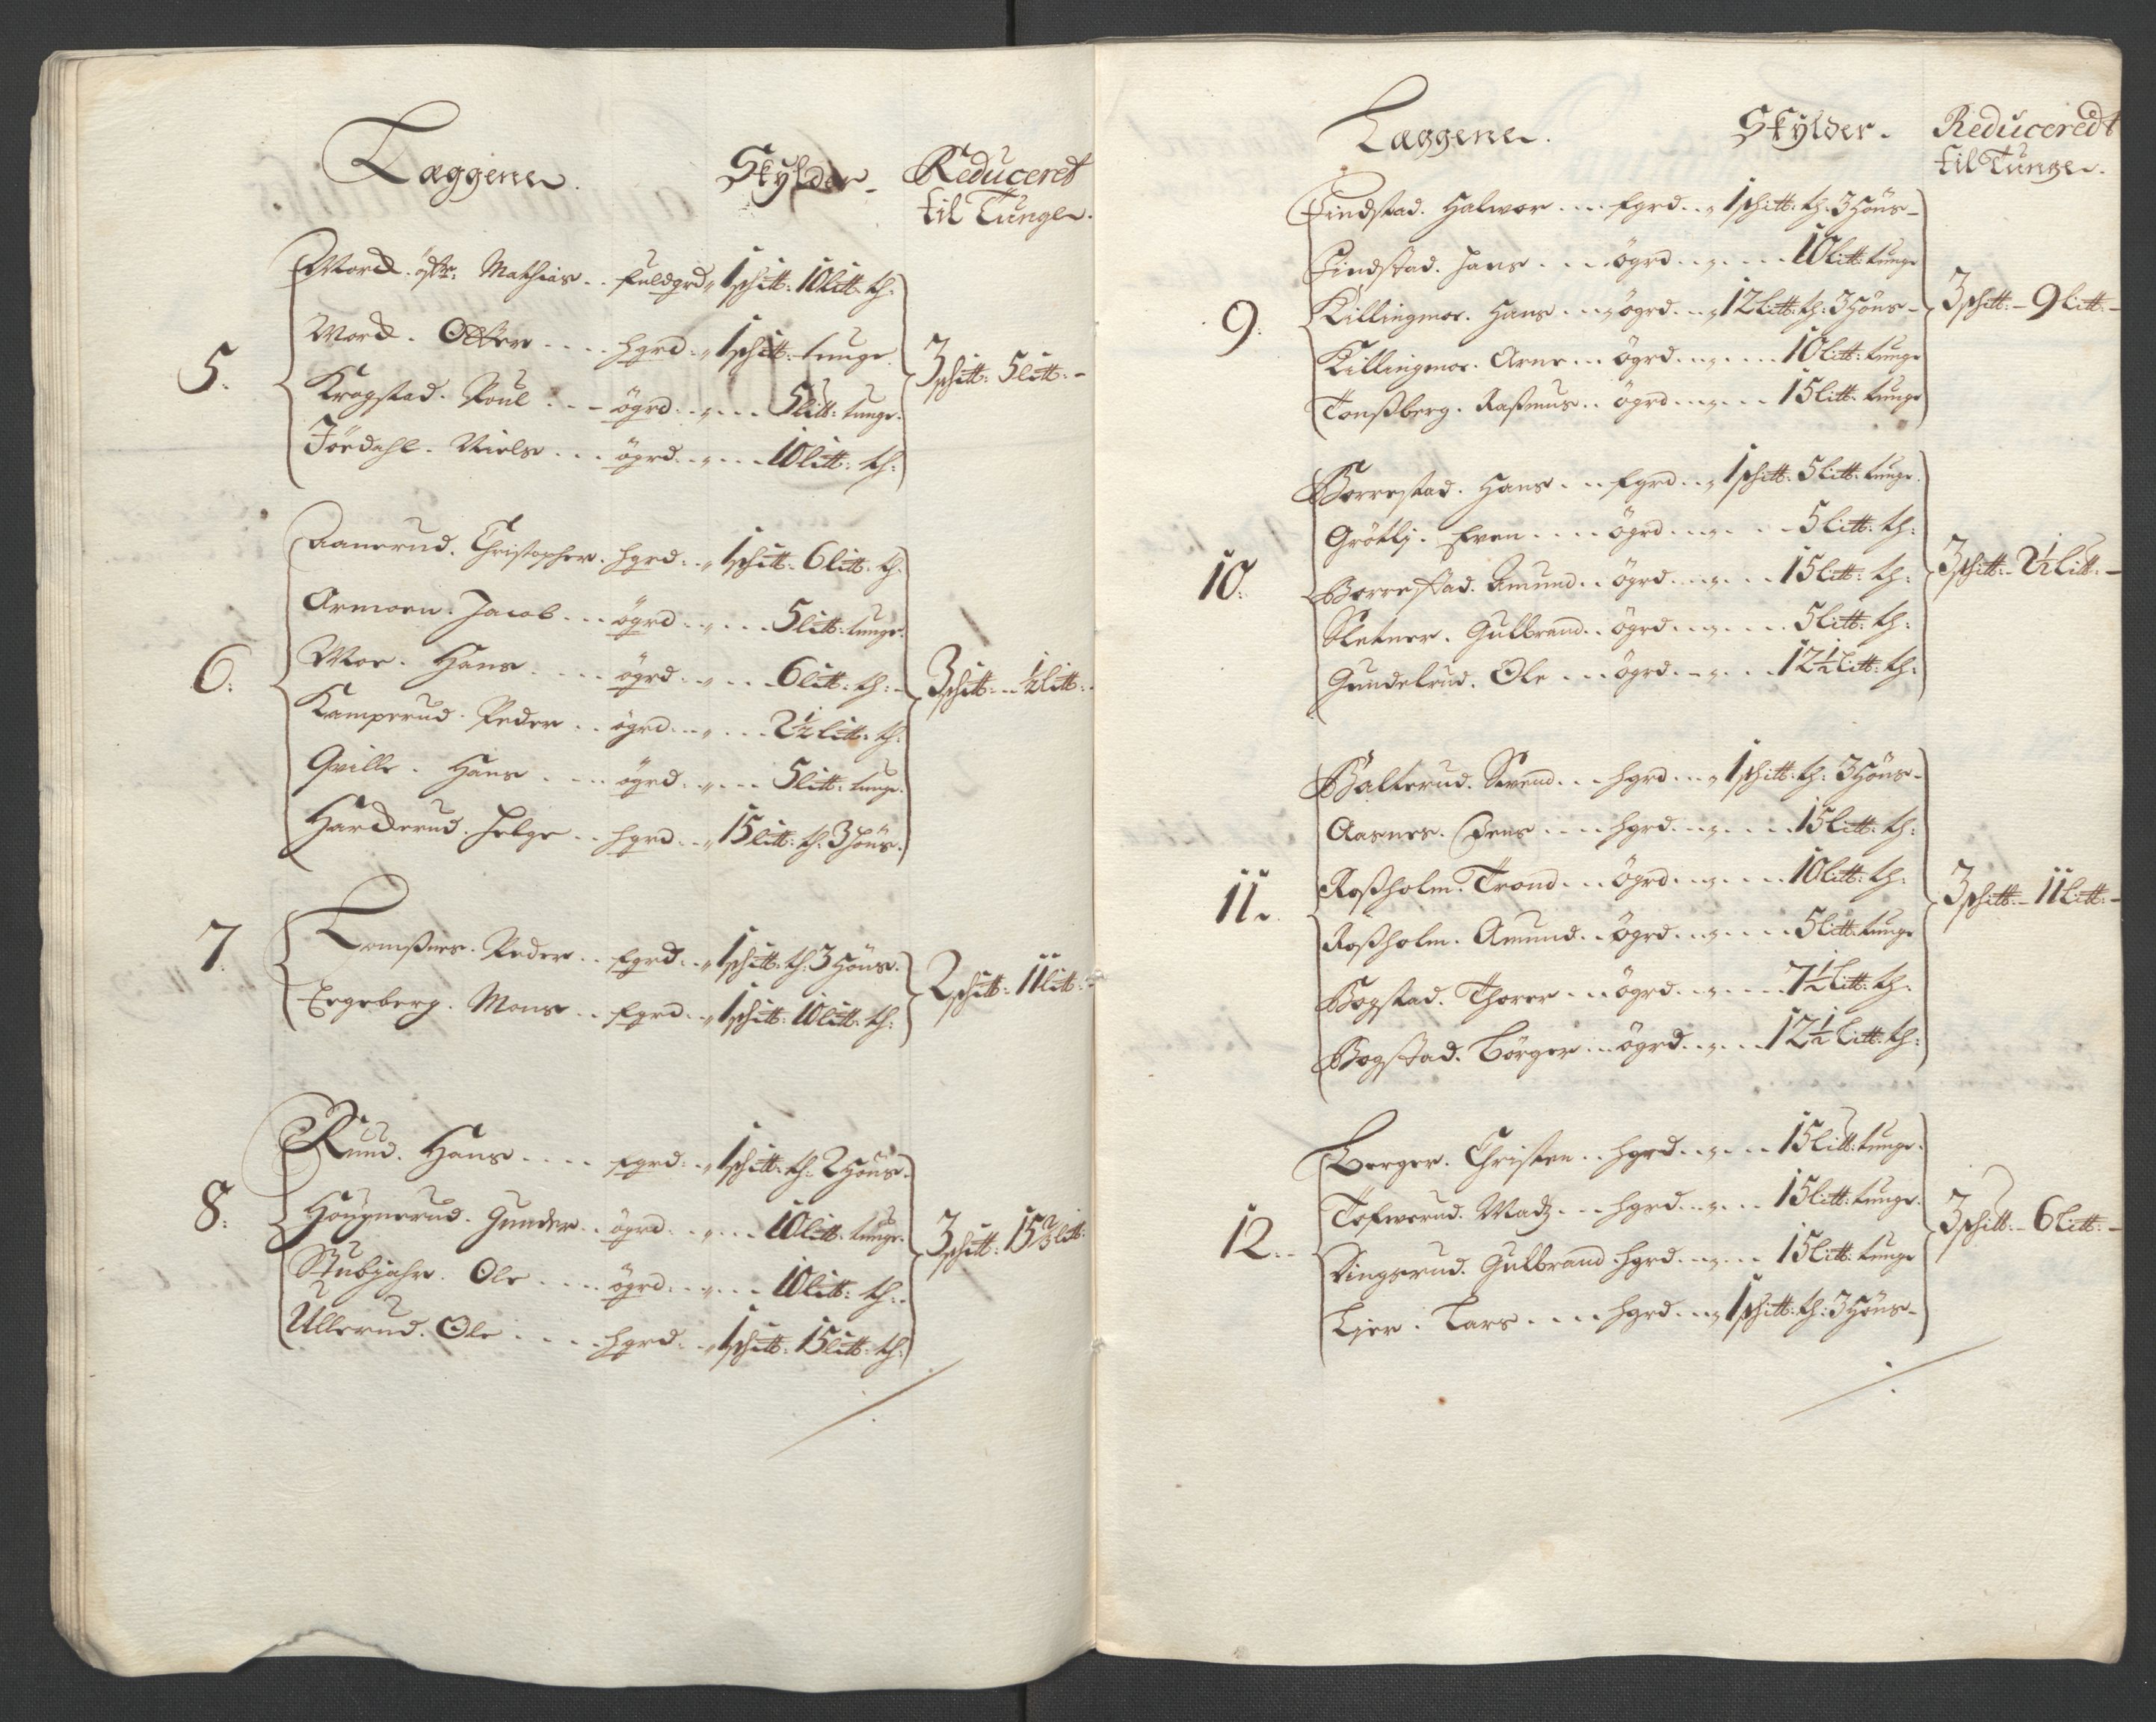 Læggene. Skylder. Reduceret
til Tunge.
Mord. østr. Mathias .. fuldgrd „ 1 schitt: 10 litt: th:
Mord. Otter .... hgrd: „ 1 schitt: tunge.
5. 3 schitt: 5 litt: -
Krogstad. Poul ... ögrd .. „ ... 5 litt: tunge.
Jördahl. Niels ... ögrd .. „ ... 10 litt: th:
Aanerud. Christopher. hgrd: .. „ 1 schitt: 6 litt: th:
Armoen. Jacob ... ögrd .. „ ... 5 litt: tunge.
6. Moe. Hans .... ögrd .. „ ... 6 litt: th: 3 schitt: .. ½ litt:
Kamperud. Peder .. ögrd .. „ ... 2½ litt: th:
Qville. Hans .... ögrd .. „ ... 5 litt: tunge.
Harderud. Helge .. hgrd .. „ 15 litt: th: 3 Höns.
7. Tomßnes. Peder .. fgrd .. „ 1 schitt: th: 3 Höns. 2 schitt: 11 litt: -
Ergeberg. Mons .. fgrd .. „ 1 schitt: 10 litt: th:
Ruud. Hans .... fgrd .. „ 1 schitt: th: 2 Höns.
8. Hougnerud. Gunder .. ögrd .. „ ... 10 litt: tunge. 3 schitt: 15⅔ litt:
Stubjahr. Ole .... ögrd .. „ ... 10 litt: th:
Ullerud. Ole .... hgrd .. „ 1 schitt: 15 litt: th:
Læggene. Skylder. Reduceredt
til Tunge.
Findstad. Halvor .... fgrd .. „ 1 schitt: th: 3 Höns -
Findstad. Jans .... ögrd .. „ .... 10 litt: tunge
9. Killingmoe. Hans ... ögrd .. „ 12 litt: th: 3 Höns - 3 schitt: - 9 litt: -
Killingmoe. Arne ... ögrd .. „ .... 10 litt: tunge
Tonßberg. Raßmus .. ögrd .. „ ... 15 litt: tunge
Borrestad. Hans ... fgrd .. „ 1 schitt: 5 litt: tunge.
Grötlj. Even .... ögrd .. „ .... 5 litt: th:
10. Borrestad. Amund .. ögrd .. „ ... 15 litt: th: 3 schitt: - 2½ litt: -
Sletner. Gulbrand .. ögrd .. „ .... 5 litt: th:
Gundelrud. Ole ... ögrd .. „ ... 12½ litt: th:
Balterud. Svend ... hgrd .. „ 1 schitt: th: 3 Höns -
Aasnes. Jens .... hgrd .. „ ... 15 litt: th:
11. Roßholm. Trond ... ögrd .. „ ... 10 litt: th: 3 schitt: - 11 litt: -
Roßholm. Amund .. ögrd .. „ .... 5 litt: tunge
Bogstad. Thorer ... ögrd .. „ .... 7½ litt: th:
Bogstad. Börger ... ögrd .. „ ... 12½ litt: th:
Berger. Christen .. hgrd .. „ ... 15 litt: tunge.
Tofverud. Madz ... hgrd .. „ ... 15 litt: tunge.
12. Dingsrud. Gulbrand. hgrd .. „ ... 15 litt: tunge 3 schitt: - 6 litt: -
Lier. Lars .... hgrd .. „ 1 schitt: th: 3 Höns -